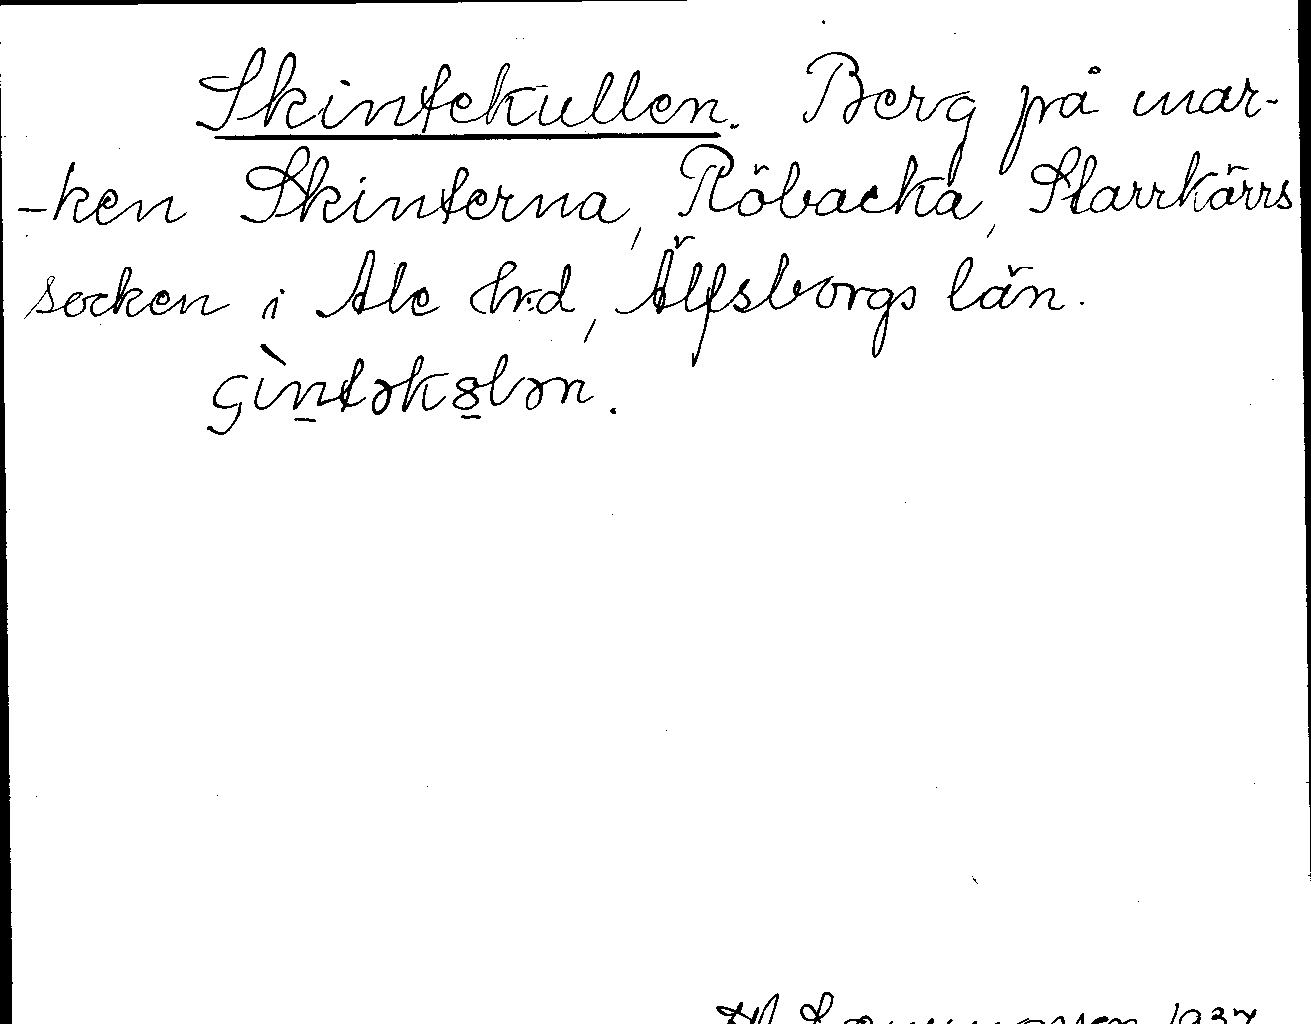 Skintekullen. Berg på mar-
-ken Skinterna, Röbacka, Starrkärrs
socken i Ale hrd, Älfsborgs län.
ɕìn̠təko̠lən.
1937